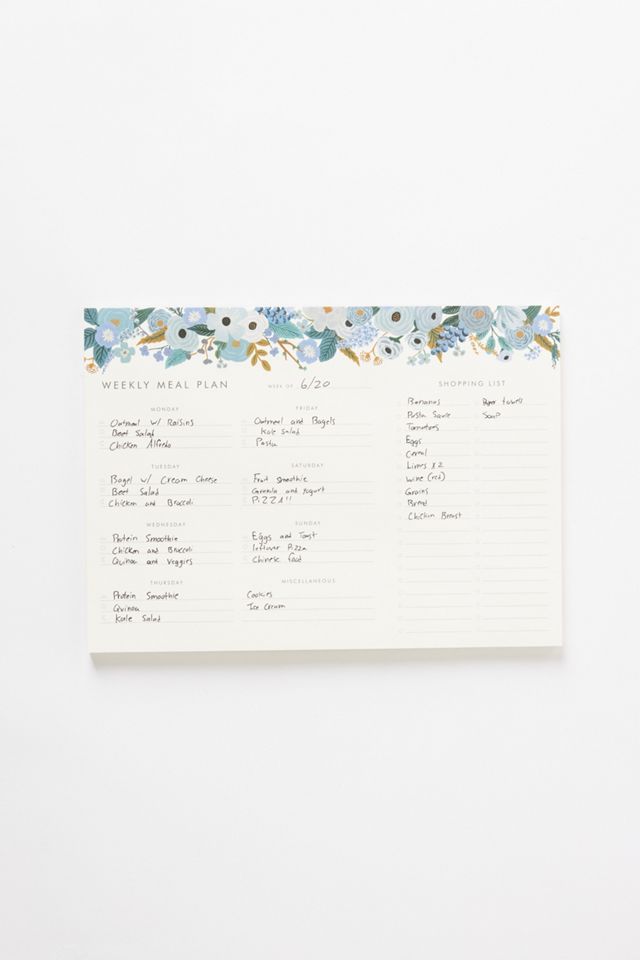 WEEKLY MEAL PLAN
WEEK OF 6/20
MONDAY
Oatmeal w/ Raisins
Beet Salad
Chicken Alfredo
TUESDAY
Bagel w/ Cream Cheese
Beet Salad
Chicken and Broccoli
WEDNESDAY
Protein Smoothie
Chicken and Broccoli
Quinoa and Veggies
THURSDAY
Protein Smoothie
Quinoa
Kale Salad
FRIDAY
Oatmeal and Bagels
Kale Salad
Pasta
SATURDAY
Fruit Smoothie
Granola and yogurt
PIZZA!!
SUNDAY
Eggs and Toast
leftover Pizza
Chinese food
MISCELLANEOUS
Cookies
Ice Cream
SHOPPING LIST
Bananas
Pasta Sauce
Tomatoes
Eggs
Cereal
Limes x2
Wine (red)
Grains
Bread
Chicken Breast
Paper towels
Soap